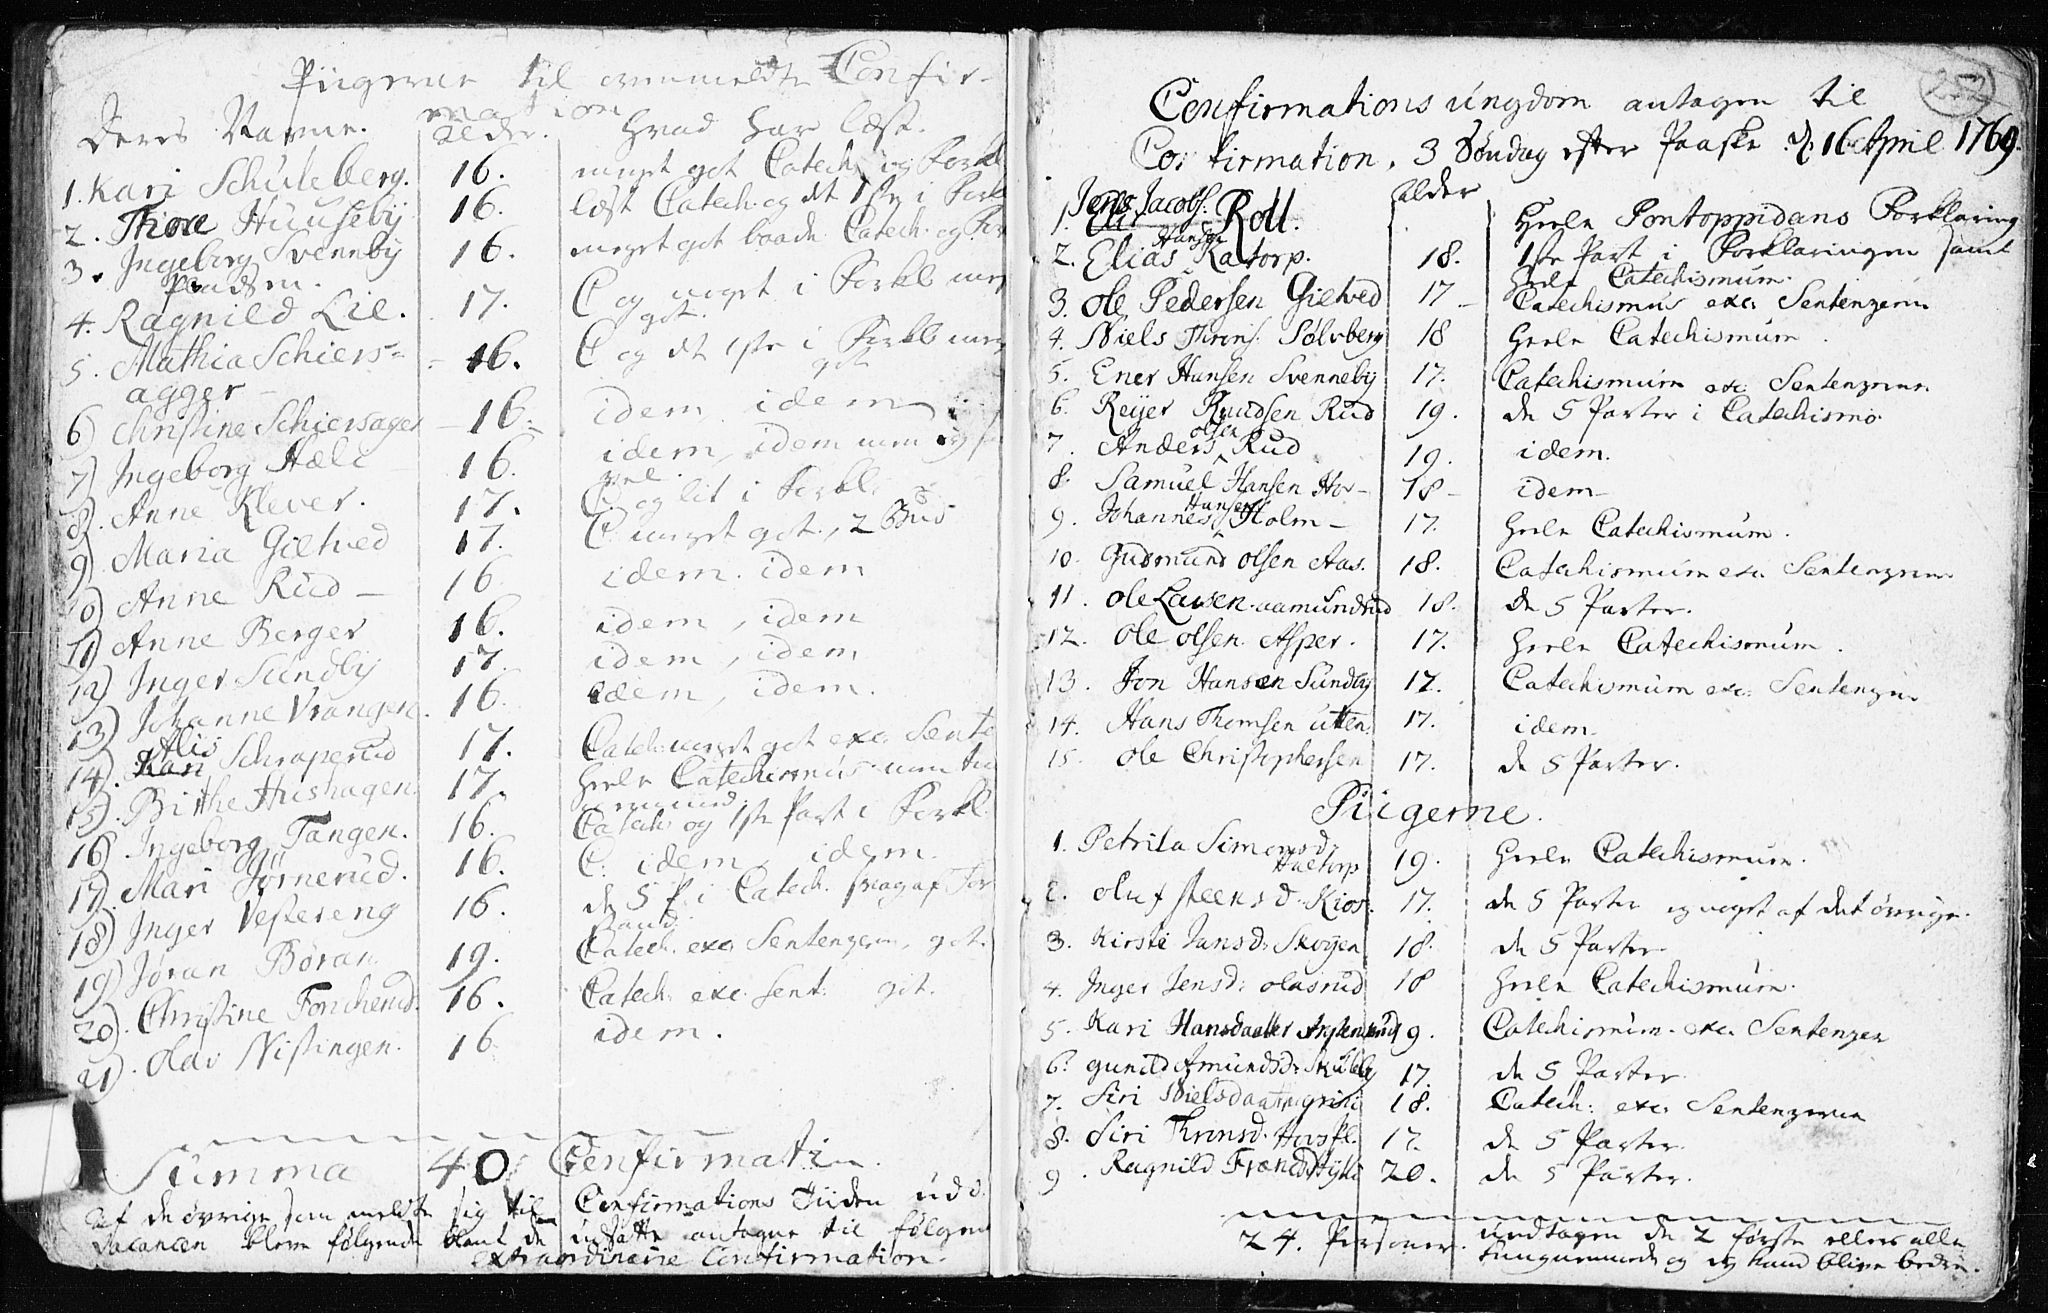 Piigerne til ovenmeldte Confir-
mation
Deres Navne. alder. hvad har læst.
1. Kari Schuleberg. 16. meget got Catech. og Forkl
2. Thore Huuseby 16. læst Catech. og dt 1ste i Forkl
3. Ingeborg Svenneby 16. meget got baade Catech. og For
Knudsen.
4. Ragnild Lie. 17. C og noget i Forkl meg
got.
5. Mathia Schiers- 16. C og dt 1ste i Forkl meg
agger - got
6) Christine Schiersager 16. idem idem
7) Ingeborg Hæli 16. idem, idem
8. Anne Klever. 17. C. og lit i Forkl.
9) Maria Gietved 17. C. meget got, 2
10) Anne Rud 16. idem. idem
11) Anne Berger 16. idem, idem
12) Inger Sundby 17. idem, idem
13) Johanne Vrangen. 16. idem, idem.
14) Alis Schraperud 17. Catech: meget got exc. Sente
15) Birthe Hushagen. 17. heele Catechismus
16) Ingeborg Tangen. 16. Catech. og 1ste Part i Forkl.
17) Mari Jørnerud. 16. C. idem, idem.
18) Inger Vestereng 16. de 5 P. i Catech. svag af For
stand.
19) Jøran Børan 19. Catech. exc. Sentenzerne, got.
20). Christine Foncherud. 16. Catech. exc. Sent. got.
21). Olav Nistingen. 16. idem.
Summa 40 Confirmati
Af de øvrige som meldte sig til Confirmations Tiiden ud i
Vacancen bleve følgende blant de udsatte antagne til følgen
extraordinaire Confirmation.
252
Confirmations ungdom antagen til
Confirmation, 3 Søndag efter Paaske d. 16 April 1769.
alder
1. Jens Jacobs. Roll. heele Pontoppidans Forklaring
2. Elias Hansen Katorp. 18. 1ste Part i Forklaringen samt
heele Catechismum.
3. Ole Pedersen Gietved 17 - Catechismus exc. Sentenzerne
4. Niels Throns. Sølvberg 18 heele Catechismum.
5. Ener Hansen Svenneby 17. Catechismum exc. Sentenzerne
6. Reyer Knudsen Rud 19. de 5 Parter i Catechismo.
7. Anders olsen Rud 19. idem.
8. Samuel Hansen Hov- 18- idem-
9. Johannes Hansen Holm- 17. heele Catechismum.
10. Gudmund olsen Aas. 18. Catechismum exc. Sentenzerne
11. Ole Larsen. aamundrud 18. de 5 Parter.
12. Ole olsen. Asper. 17. heele Catechismum.
13. Jon Hansen Sundby 17. Catechismum exc. Sentenzer
14. Hans Thomsen Utten. 17. idem.
15. Ole Christophersen 17. de 5 Parter.
Piigerne.
1. Petrila Simonsd. 19. heele Catechismum.
2. Oluf steensd. Kios. 17. de 5 Parter og noget af det øvrige.
3. Kirsti Jansd. Skoyen 18. de 5 Parter
4. Inger Jensd. olasrud 18 heele Catechismum.
5. Kari Hansdaatter 19. Catechismum. exc. Sentenzer
6. gunild Amundsd. Skulebg 17. de 5 Parter.
7. Siri Nielsdaatter grini 18. Catech: exc. Sentenzerne
8. Siri Thronsd. 17. de 5 Parter.
9. Ragnild 20. de 5 Parter.
24. Personer. undtagen de 2 første ellers alle
tungnemmede og ey kand blive bedre.